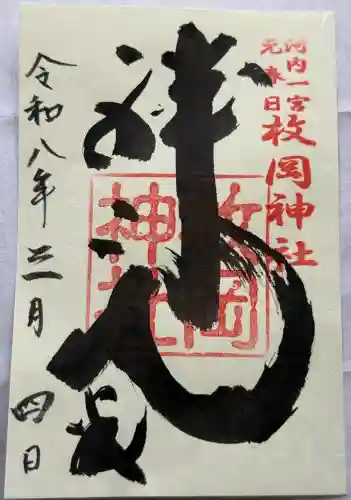 河内一宮
元春日
枚岡神社
枚岡
神社
令和八年三月四日